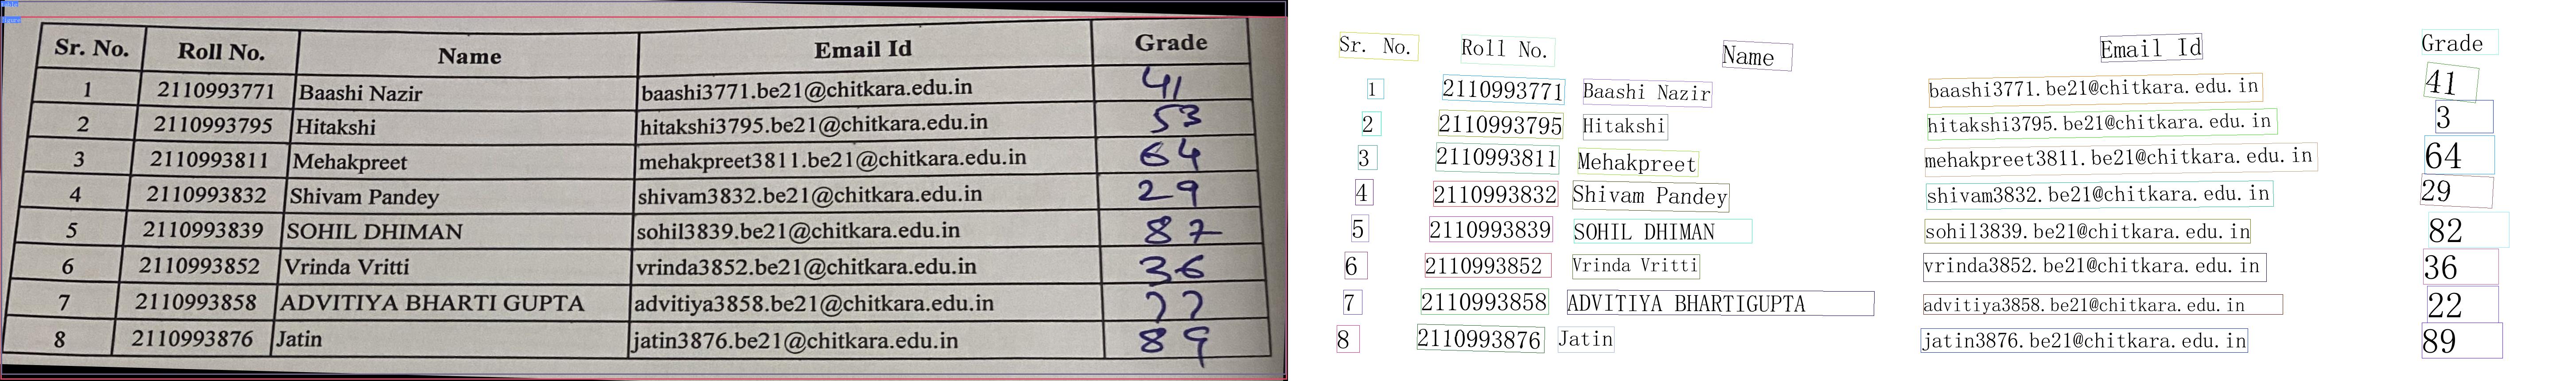 Sr. No. Roll No. Name Email Id Grade
1 2110993771 Baashi Nazir baashi3771.be21@chitkara.edu.in 41
2 2110993795 Hitakshi hitakshi3795.be21@chitkara.edu.in 53
3 2110993811 Mehakpreet mehakpreet3811.be21@chitkara.edu.in 64
4 2110993832 Shivam Pandey shivam3832.be21@chitkara.edu.in 29
5 2110993839 SOHIL DHIMAN sohil3839.be21@chitkara.edu.in 87
6 2110993852 Vrinda Vritti vrinda3852.be21@chitkara.edu.in 36
7 2110993858 ADVITIYA BHARTI GUPTA advitiya3858.be21@chitkara.edu.in 77
8 2110993876 Jatin jatin3876.be21@chitkara.edu.in 89
Sr. No. Roll No. Name Email Id Grade
1 2110993771 Baashi Nazir baashi3771.be21@chitkara.edu.in 41
2 2110993795 Hitakshi hitakshi3795.be21@chitkara.edu.in 3
3 2110993811 Mehakpreet mehakpreet3811.be21@chitkara.edu.in 64
4 2110993832 Shivam Pandey shivam3832.be21@chitkara.edu.in 29
5 2110993839 SOHIL DHIMAN sohil3839.be21@chitkara.edu.in 82
6 2110993852 Vrinda Vritti vrinda3852.be21@chitkara.edu.in 36
7 2110993858 ADVITIYA BHARTIGUPTA advitiya3858.be21@chitkara.edu.in 22
8 2110993876 Jatin jatin3876.be21@chitkara.edu.in 89